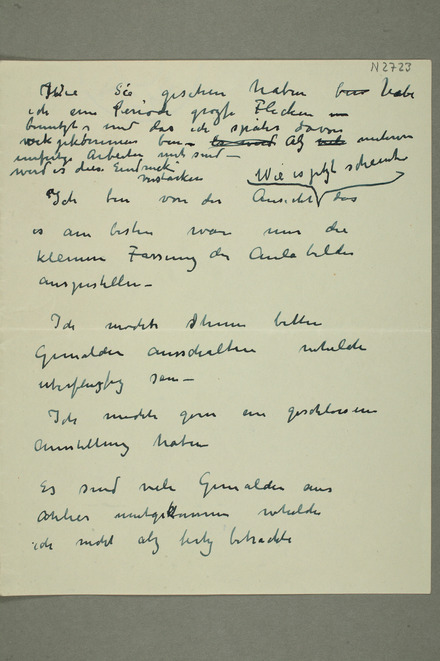 N2723
Wie Sie gesehen haben habe
ich eine Periode grosse Flecken
benutzt und das ich später davon
weggekommen bin – Als mehrere
Arbeiten mit sind –
wird es diese Eindruck
verstärken
Wie es jetzt scheint
Ich bin von der Ansicht das
es am besten wäre nur die
kleinen Fassung der Aulabilder
auszustellen –
Ich möchte Ihnen bitten
Gemälden ausschalten welche
überflussig sein –
Ich möchte gern ein geschlossene
Ausstellung haben
Es sind viele Gemälden aus
Atelier mitgekommen welche
ich nicht als fertig betrachte